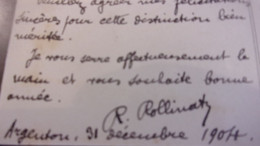 Veuillez agréer mes félicitations
sincères pour cette distinction bien
méritée.
Je vous serre affectueusement la
main et vous souhaite bonne
année.
R. Rollinat
Argenton, 31 décembre 1904.